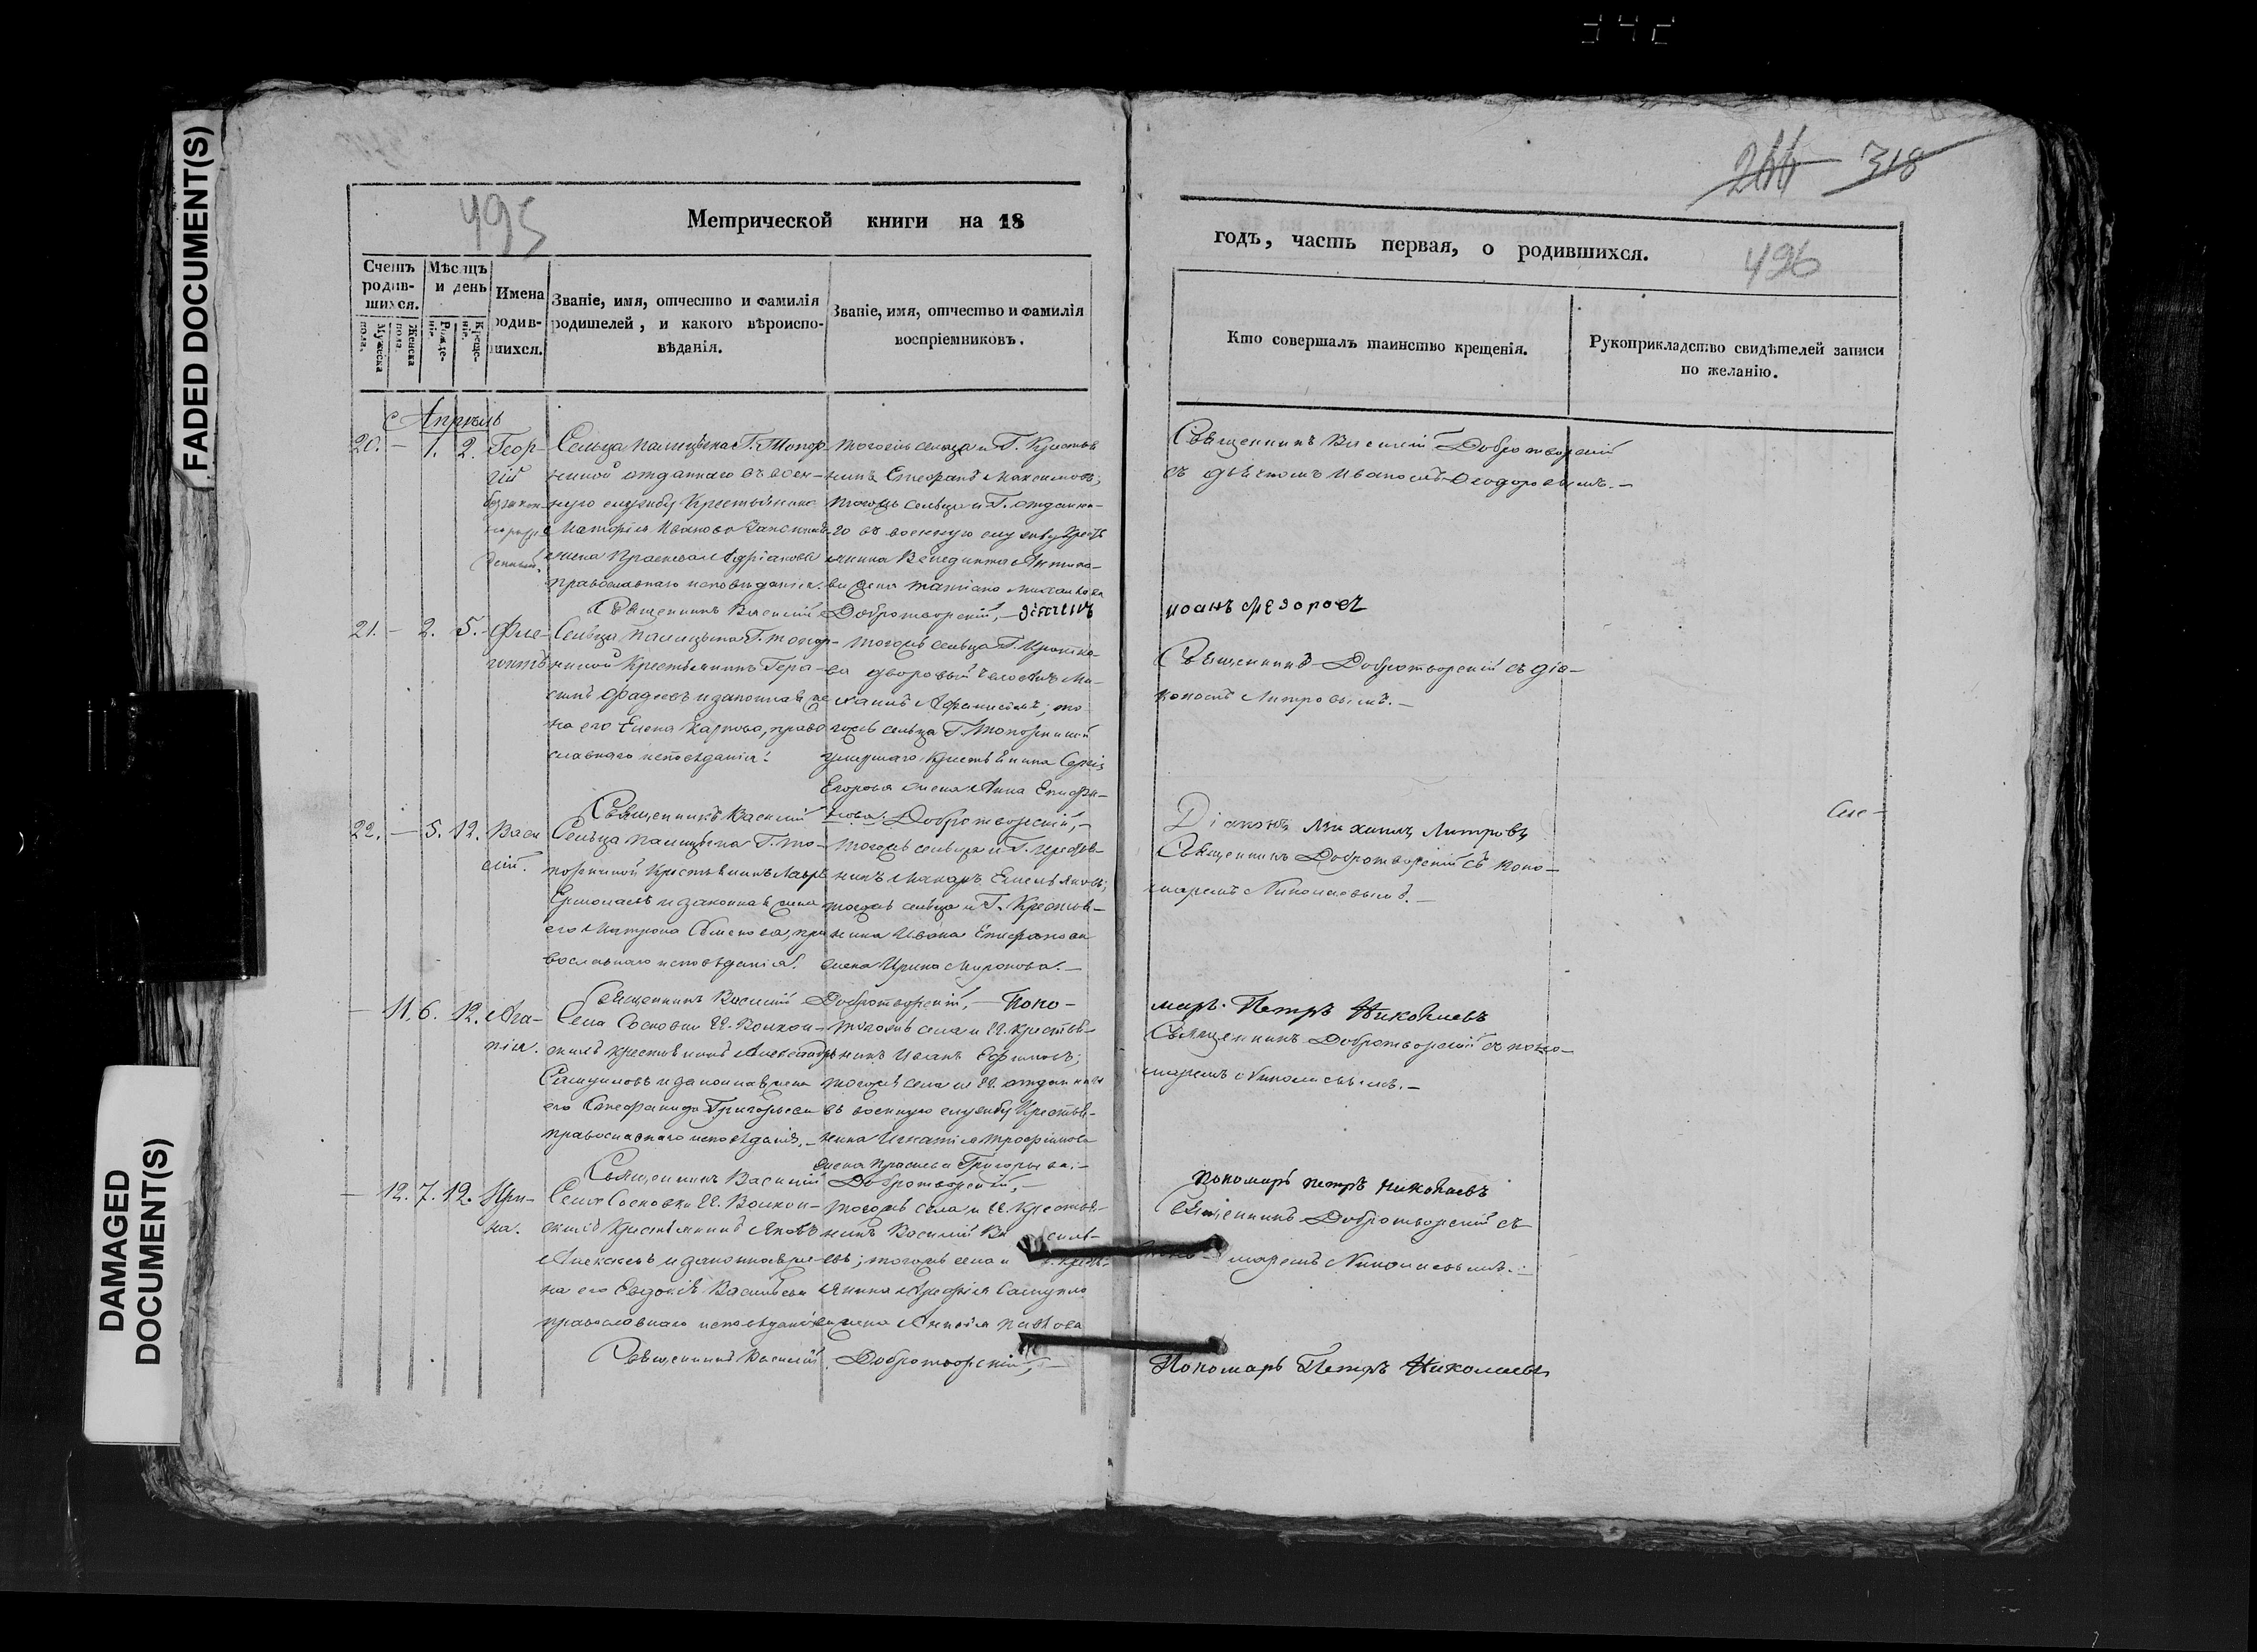 FADED DOCUMENT(S)
DAMAGED
DOCUMENT(S)
495
Метрической книги на 18
Счетъ родив-шихся.
Мужеска пола.
Женска пола.
Мѣсяцъ и день
Рожде-нія.
Креще-нія.
Имена родив-шихся.
Званіе, имя, отчество и фамилія
родителей, и какого вѣроиспо-
вѣданія.
Званіе, имя, отчество и фамилія
воспріемниковъ.
Апрѣль
20. – 1. 2. Геор-
гій
Сельца Палицына Г. Топор-
ниной отданнаго въ воен-
ную службу Крестьянина
жена Прасковья Адріанова
православнаго исповѣданія.
тогожъ сельца и Г. Крестья
нинъ Стефанъ Максимовъ;
тогожъ сельца и Г. отданна-
го въ военную службу Крест
янина Венедикта
жена Татіана
Священникъ Василій Добротворскій, – дьячекъ
21. – 2. 5. Фле-
гонтъ
Сельца Палицына Г. Топор-
ниной Крестьянинъ Гера-
симъ Фадеевъ и законная же
на его Елена Карпова, право
славнаго исповѣданія.
тогожъ сельца Г.
дворовый человѣкъ
то
гожъ сельца Г. Топорниной
умершаго Крестьянина Сергія
Егорова жена Анна Епифа-
нова.
Священникъ Василій Добротворскій, –
22. – 5. 12. Васи
лій.
Сельца Палицына Г. То-
порниной Крестьянинъ Лавръ
Ермолаевъ и законная жена
его Матрона Семенова, пра
вославнаго исповѣданія.
тогожъ сельца и Г. Крестья-
нинъ Макаръ Емельяновъ;
тогожъ сельца и Г. Крестья-
нина Ивана Епифанова
жена Ирина Миронова. –
Священникъ Василій Добротворскій, – Поно-
– 11. 6. 12. Ага-
пія.
Села Сосновки Волкон-
скихъ крестьянинъ Александръ
Самуиловъ и законная жена
его Стефанида Григорьева
православнаго исповѣданія. –
тогожъ села и крестья-
нинъ Иванъ Ефимовъ;
тогожъ села и отданнаго
въ военную службу Крестья-
нина Игнатія Трофимова
жена Прасковья Григорьева. –
Священникъ Василій Добротворскій, –
– 12. 7. 12. Ири-
на.
Села Сосновки Волкон-
скихъ Крестьянинъ Яковъ
Алексѣевъ и законная же-
на его Евдокія Васильева
православнаго исповѣданія
тогожъ села и Крестья-
нинъ Василій Ва силь-
евъ; тогожъ села и крест-
янина Арефія Самуило
ва жена Павлова
Священникъ Василій Добротворскій, –
244 – 318
годъ, часть первая, о родившихся.
496
Кто совершалъ таинство крещенія.
Рукоприкладство свидѣтелей записи
по желанію.
Священникъ Василій Добротворскій
съ дьячкомъ Иваномъ Феодоровымъ. –
иоанъ федоровъ
Священникъ Добротворскій съ діа-
кономъ Митровымъ. –
Діаконъ Михаилъ Митровъ
Священникъ Добротворскій съ поно-
маремъ Николаевымъ. –
марь. Петръ Николаевъ
Священникъ Добротворскій съ поно-
маремъ Николаевымъ. –
пономарь петръ николаевъ
Священникъ Добротворскій съ
поно маремъ Николаевымъ. –
Пономарь Петръ Николаевъ